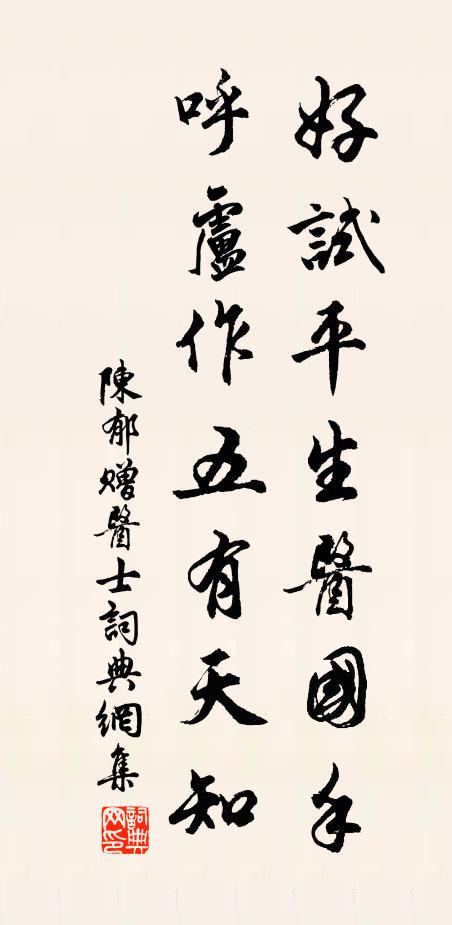 好試平生醫國手
呼盧作五有天知
陳郁贈醫士詞典網集
詞典網印